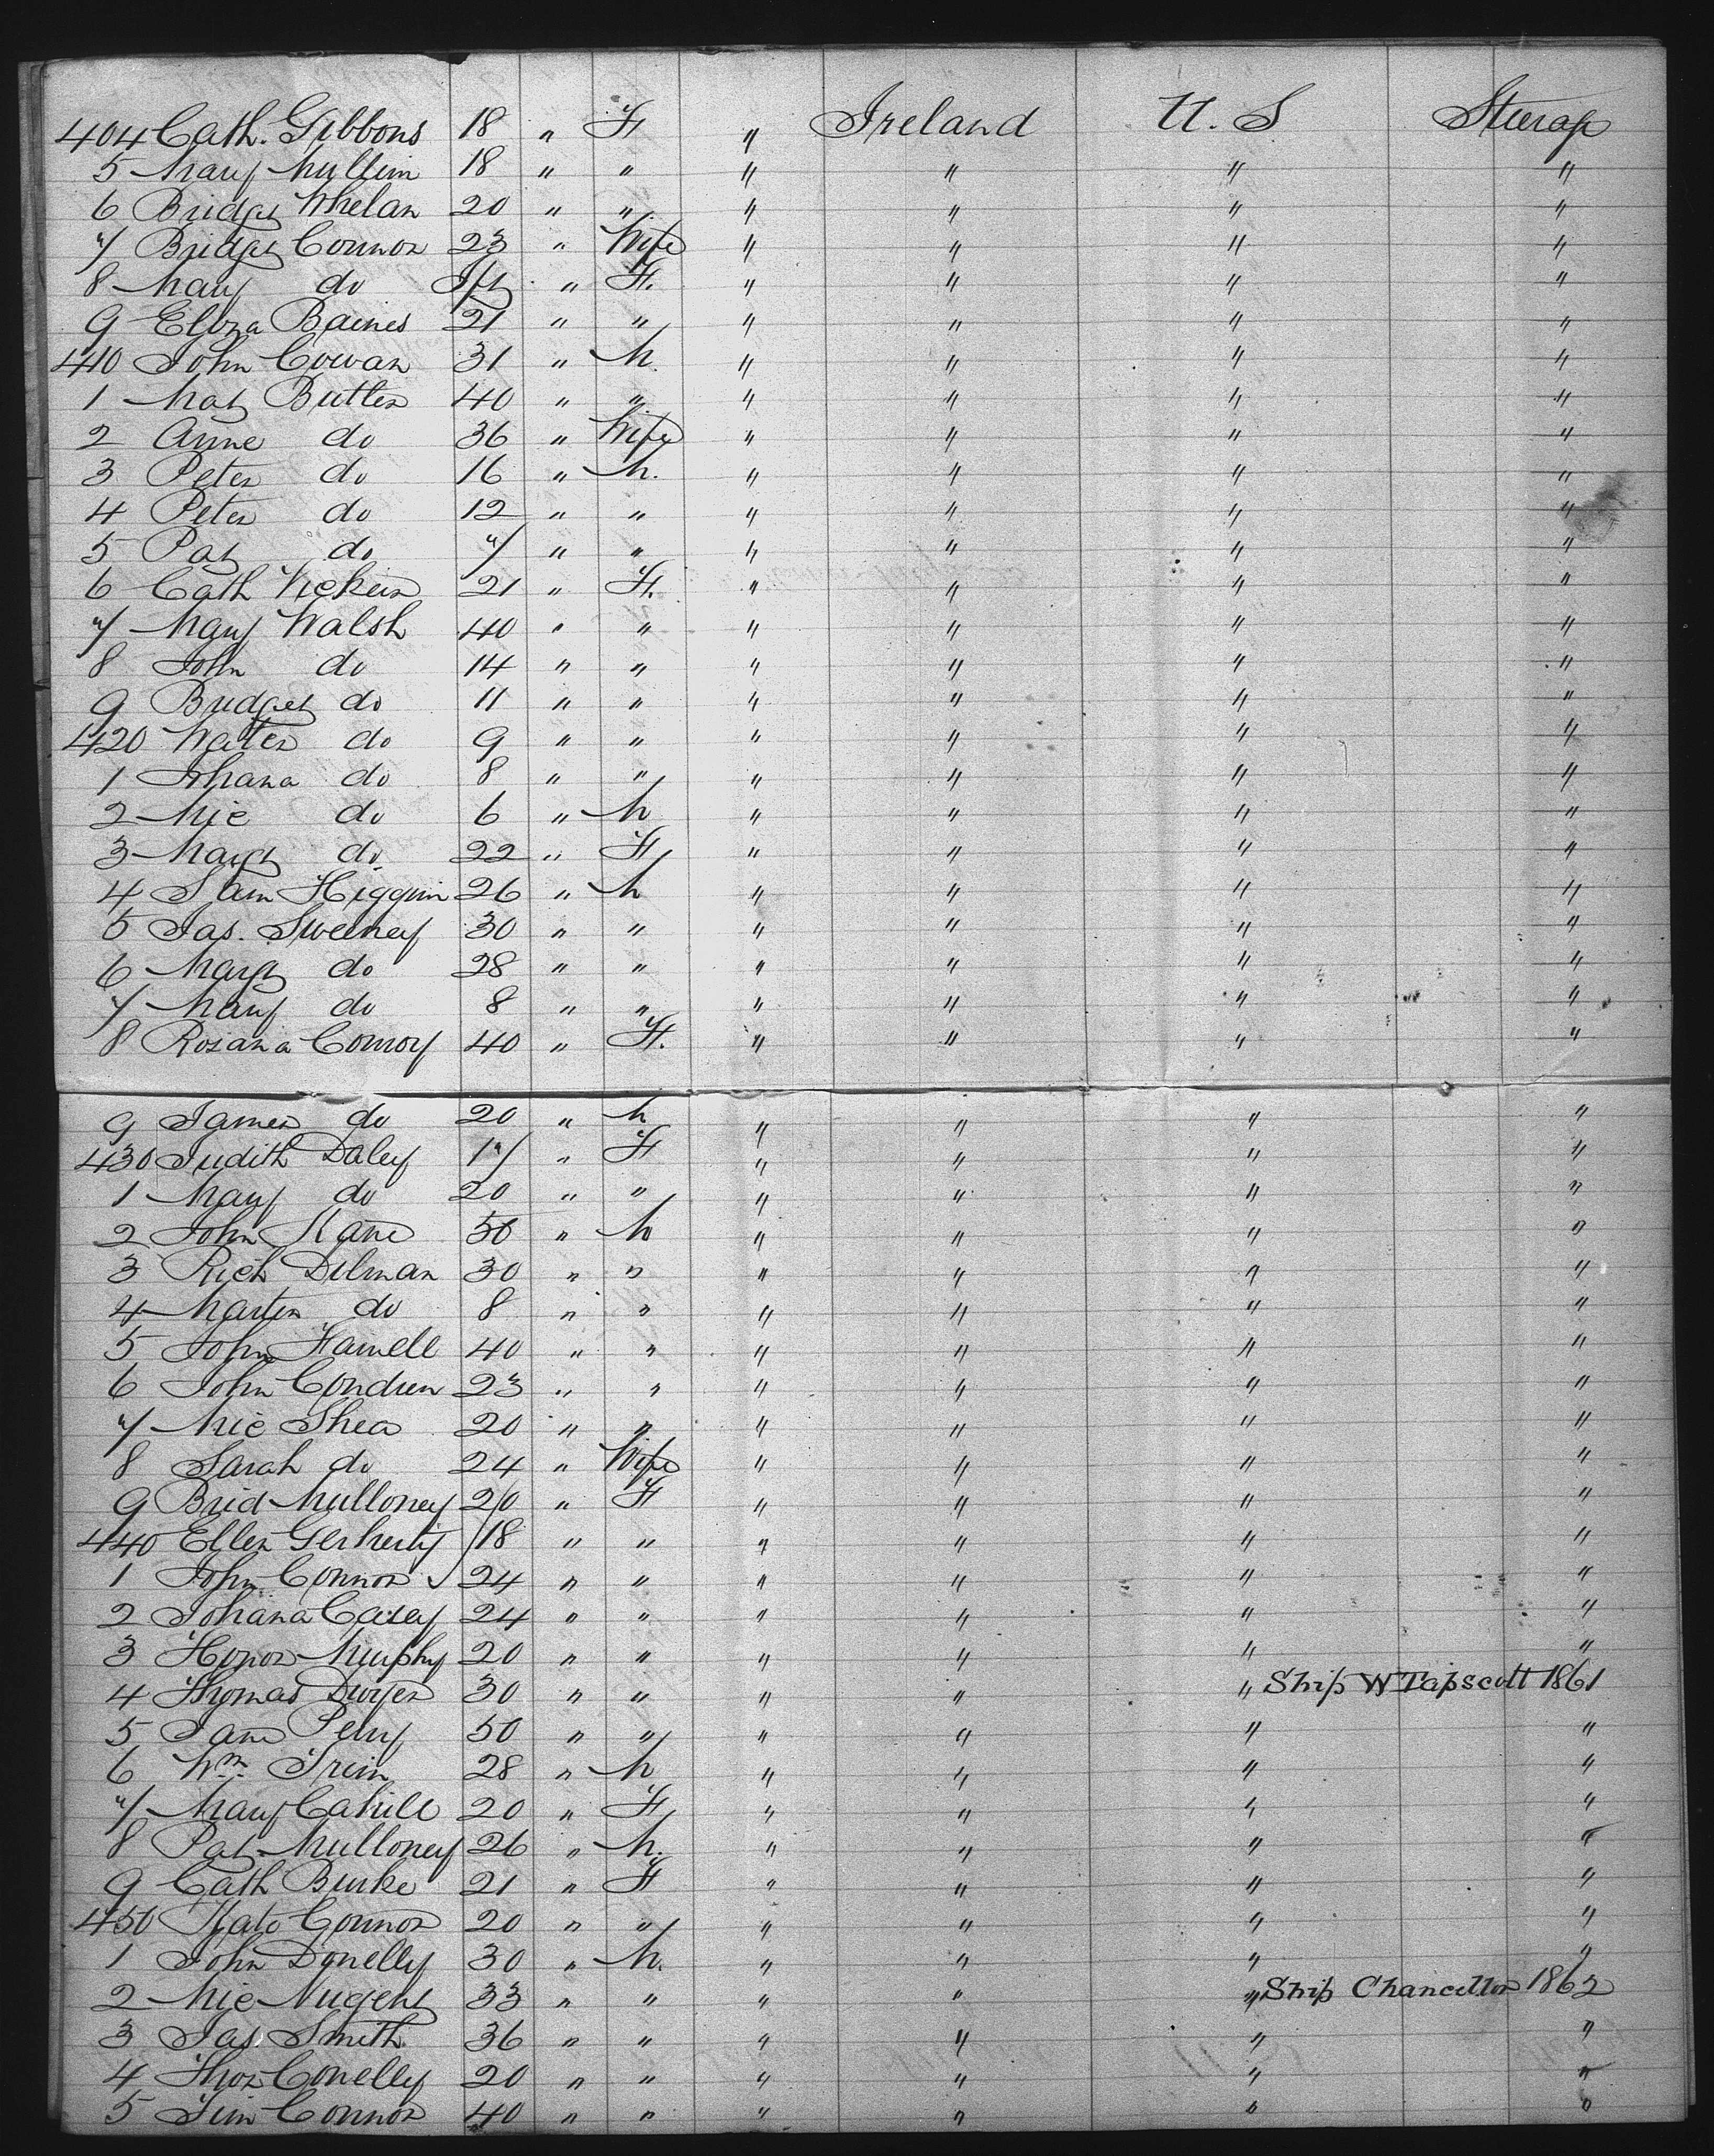 404 Cath. Gibbons 18 " F " Ireland U. S Steerage
5 Mary Mullin 18 " " " " " "
6 Bridget Whelan 20 " " " " " "
7 Bridget Connor 23 " Wife " " " "
8 Mary do Ift " F. " " " "
9 Eliza Baines 21 " " " " " "
410 John Cowan 31 " M. " " " "
1 Mat Butler 40 " " " " " "
2 Anne do 36 " Wife " " " "
3 Peter do 16 " M. " " " "
4 Peter do 12 " " " " " "
5 Pat do 7 " " " " " "
6 Cath Vickers 21 " F. " " " "
7 Mary Walsh 40 " " " " " "
8 John do 14 " " " " " "
9 Bridget do 11 " " " " " "
420 Walter do 9 " " " " " "
1 Johana do 8 " " " " " "
2 Mic do 6 " M " " " "
3 Margt do 22 " F " " " "
4 Sam Higgin 26 " M " " " "
5 Jas. Sweeney 30 " " " " " "
6 Margt do 28 " " " " " "
7 Mary do 8 " " " " " "
8 Rosana Conroy 40 " F. " " " "
9 James do 20 " M " " " "
430 Judith Daley 17 " F " " " "
1 Mary do 20 " " " " " "
2 John Kane 50 " M " " " "
3 Rich Dilman 30 " " " " " "
4 Martin do 8 " " " " " "
5 John Farrell 40 " " " " " "
6 John Condren 23 " " " " " "
7 Mic Shea 20 " " " " " "
8 Sarah do 24 " Wife " " " "
9 Brid Mulloney 20 " F " " " "
440 Ellen Gerherty 18 " " " " " "
1 John Connor 24 " " " " " "
2 Johana Casey 24 " " " " " "
3 Honor Murphy 20 " " " " " "
4 Thomas Dwyer 30 " " " " " Ship W Tapscott 1861
5 Jane Perry 50 " " " " " "
6 Wm Trim 28 " M " " " "
7 Mary Cahill 20 " F " " " "
8 Pat Mulloney 26 " M. " " " "
9 Cath Burke 21 " F " " " "
450 Kate Connor 20 " " " " " "
1 John Donelly 30 " M. " " " "
2 Mic Nugent 33 " " " " " Ship Chancellor 1862
3 Jas. Smith 36 " " " " " "
4 Thos Conelly 20 " " " " " "
5 Tim Connor 40 " " " " " "